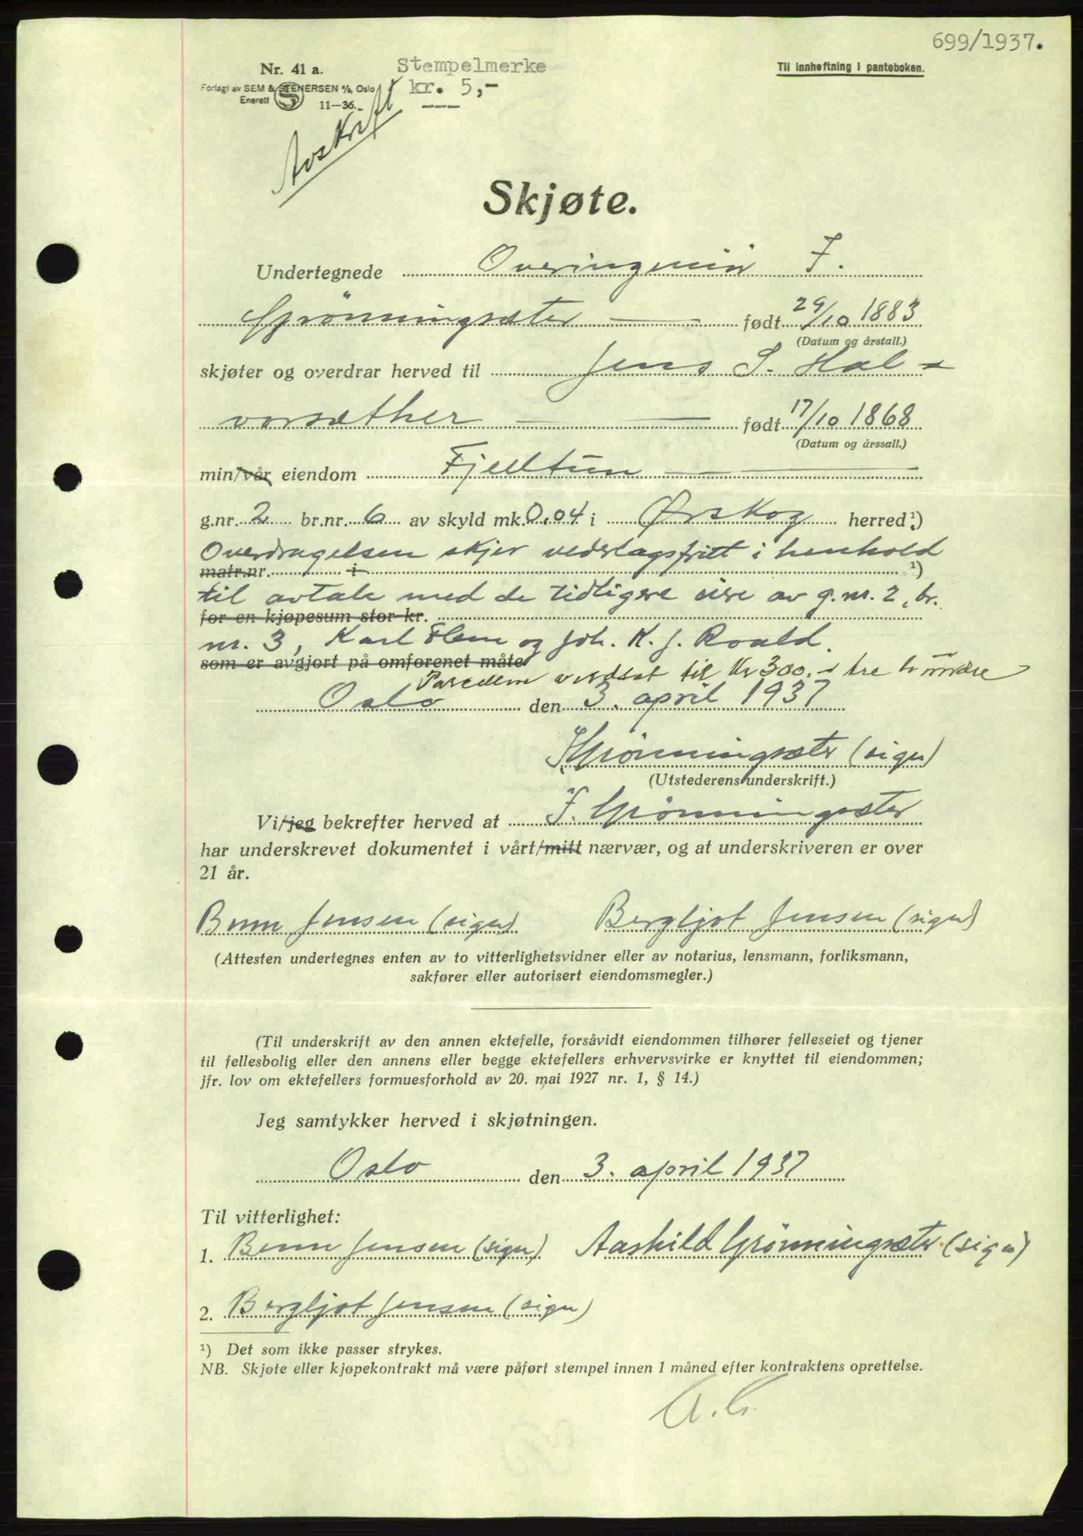 699/1937.
Nr. 41 a. Stempelmerke Til innheftning i panteboken.
Forlagt av SEM & STENERSEN A/S, Oslo kr. 5,-
Enerett S 11—36.
Avskrift
Skjøte.
Undertegnede Overingeniør F.
Grönningsæter født 29/10 1883
(Datum og årstall.)
skjøter og overdrar herved til Jens S. Hal-
vorsæther født 17/10 1868
(Datum og årssall.)
min/vår eiendom Fjelltun
g.nr. 2 br.nr. 6 av skyld mk. 0,04 i Ørskog herred ¹)
Overdragelsen skjer vederlagsfritt i henhold
matr.nr. i ¹)
til avtale med de tidligere eiere av g.nr. 2, br.
for en kjøpesum stor kr.
nr. 3, Karl Flem og Joh. K. J. Roald.
som er avgjort på omforenet måte
Parcellen verdsat til Kr 300.- tre hundre
Oslo den 3. april 1937
F. Grönningsæter (sign)
(Utstederens underskrift.)
Vi/jeg bekrefter herved at F. Grönningsæter
har underskrevet dokumentet i vårt/mitt nærvær, og at underskriveren er over
21 år.
Benn Jensen (sign) Bergljot Jensen (sign)
(Attesten undertegnes enten av to vitterlighetsvidner eller av notarius, lensmann, forliksmann,
sakfører eller autorisert eiendomsmegler.)
(Til underskrift av den annen ektefelle, forsåvidt eiendommen tilhører felleseiet og tjener
til fellesbolig eller den annens eller begge ektefellers erhvervsvirke er knyttet til eiendommen;
jfr. lov om ektefellers formuesforhold av 20. mai 1927 nr. 1, § 14.)
Jeg samtykker herved i skjøtningen.
Oslo den 3. april 1937
Til vitterlighet:
1. Benn Jensen (sign) Aashild Grönningsæter (sign)
2. Bergljot Jensen (sign)
¹) Det som ikke passer strykes.
NB. Skjøte eller kjøpekontrakt må være påført stempel innen 1 måned efter kontraktens oprettelse.